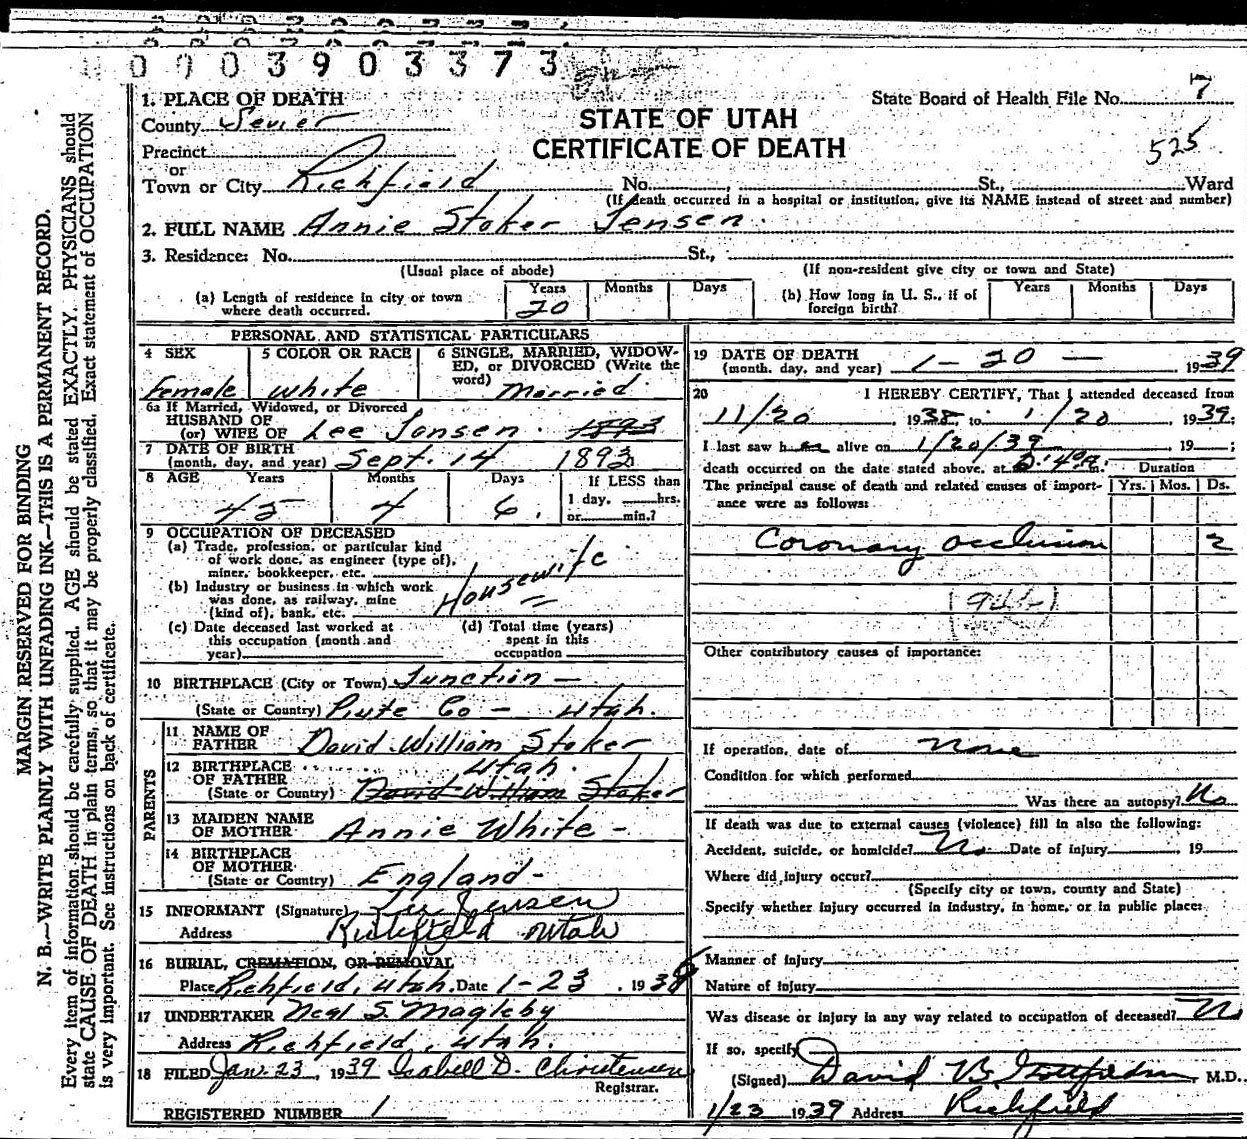 0 0 0 3 9 0 3 3 7 3
MARGIN RESERVED FOR BINDING
N. B.—WRITE PLAINLY WITH UNFADING INK—THIS IS A PERMANENT RECORD.
Every item of information should be carefully supplied. AGE should be stated EXACTLY. PHYSICIANS should
state CAUSE OF DEATH in plain terms, so that it may be properly classified. Exact statement of OCCUPATION
is very important. See instructions on back of certificate.
1. PLACE OF DEATH
County Sevier
Precinct
or
Town or City Richfield No. , St., Ward
STATE OF UTAH
CERTIFICATE OF DEATH
State Board of Health File No. 7
525
(If death occurred in a hospital or institution, give its NAME instead of street and number)
2. FULL NAME Annie Stoker Jensen.
3. Residence: No. St.,
(Usual place of abode) (If non-resident give city or town and State)
(a) Length of residence in city or town where death occurred. Years 20 Months Days
(b) How long in U. S., if of foreign birth? Years Months Days
PERSONAL AND STATISTICAL PARTICULARS
4 SEX Female
5 COLOR OR RACE White
6 SINGLE, MARRIED, WIDOWED, or DIVORCED (Write the word) Married.
6a If Married, Widowed, or Divorced
HUSBAND OF
(or) WIFE OF Lee Jensen. 1893
7 DATE OF BIRTH
(month, day, and year) Sept. 14 1893
8 AGE Years 45 Months 4 Days 6. If LESS than
1 day, hrs.
or min.?
9 OCCUPATION OF DECEASED
(a) Trade, profession, or particular kind
of work done, as engineer (type of),
miner, bookkeeper, etc. Housewife
(b) Industry or business in which work
was done, as railway, mine
(kind of), bank, etc.
(c) Date deceased last worked at
this occupation (month and
year)
(d) Total time (years)
spent in this
occupation
10 BIRTHPLACE (City or Town) Junction —
(State or Country) Piute Co — Utah.
PARENTS
11 NAME OF
FATHER David William Stoker
12 BIRTHPLACE
OF FATHER Utah.
(State or Country) David William Stoker
13 MAIDEN NAME
OF MOTHER Annie White -
14 BIRTHPLACE
OF MOTHER
(State or Country) England -
15 INFORMANT (Signature) Lee Jensen
Address Richfield Utah
16 BURIAL, CREMATION, OR REMOVAL
Place Richfield, Utah. Date 1-23, 1939
17 UNDERTAKER Neal S. Magleby
Address Richfield, Utah.
18 FILED Jan. 23, 1939 Isabell D. Christensen
Registrar.
REGISTERED NUMBER 1
19 DATE OF DEATH
(month, day, and year) 1-20- 1939
20 I HEREBY CERTIFY, That I attended deceased from
11/20 1938, to 1/20, 1939;
I last saw her alive on 1/20/39 19 ;
death occurred on the date stated above, at m. Duration
The principal cause of death and related causes of import- Yrs. Mos. Ds.
ance were as follows:
Coronary Occlusion 2
Other contributory causes of importance:
If operation, date of None
Condition for which performed
Was there an autopsy? No
If death was due to external causes (violence) fill in also the following:
Accident, suicide, or homicide? No Date of injury , 19
Where did injury occur?
(Specify city or town, county and State)
Specify whether injury occurred in industry, in home, or in public place:
Manner of injury
Nature of injury
Was disease or injury in any way related to occupation of deceased? No
If so, specify
(Signed) David M.D.
1/23 1939 Address Richfield